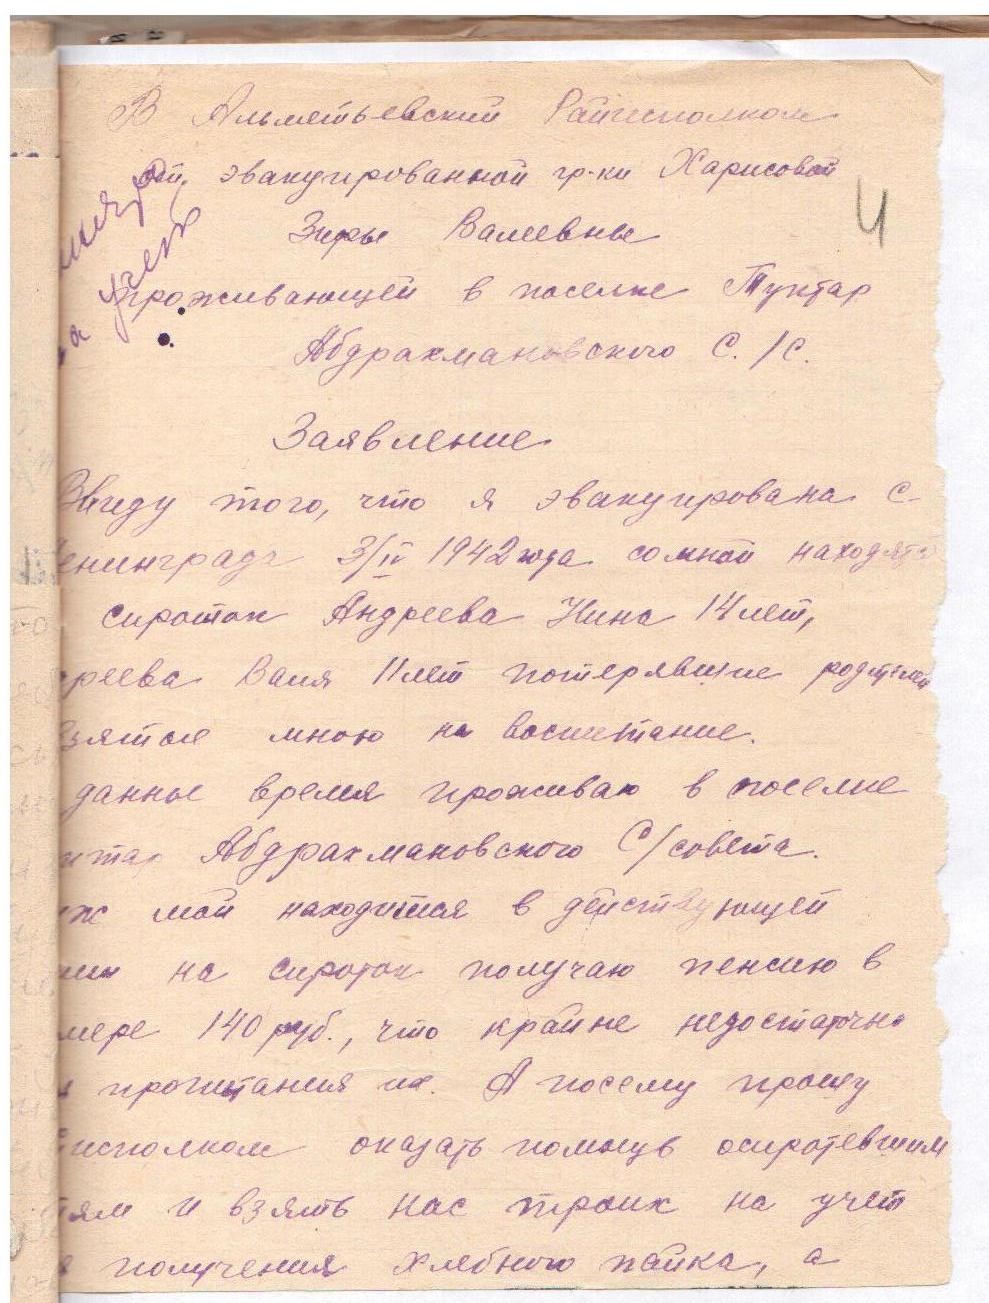 В Альметьевский Райисполком
от эвакуированной гр-ки Харисовой
4
Зиры Валеевны
на учет
проживающей в поселке Туктар
Абдрахмановского С./С.
Заявление
Ввиду того, что я эвакуирована с
Ленинграда 3/IV 1942 года со мной находятся
сироток Андреева Нина 14 лет,
дреева Валя 11 лет потерявшие родителей
взятые мною на воспитание.
данные время проживаю в поселке
ктар Абдрахмановского С/совета.
уж мой находится в действующей
мии на сироток получаю пенсию в
мере 140 руб., что крайне недостаточно
я пропитания их. А посему прошу
йисполком оказать помощь осиротевшим
тям и взять нас троих на учет
я получения хлебного пайка, а